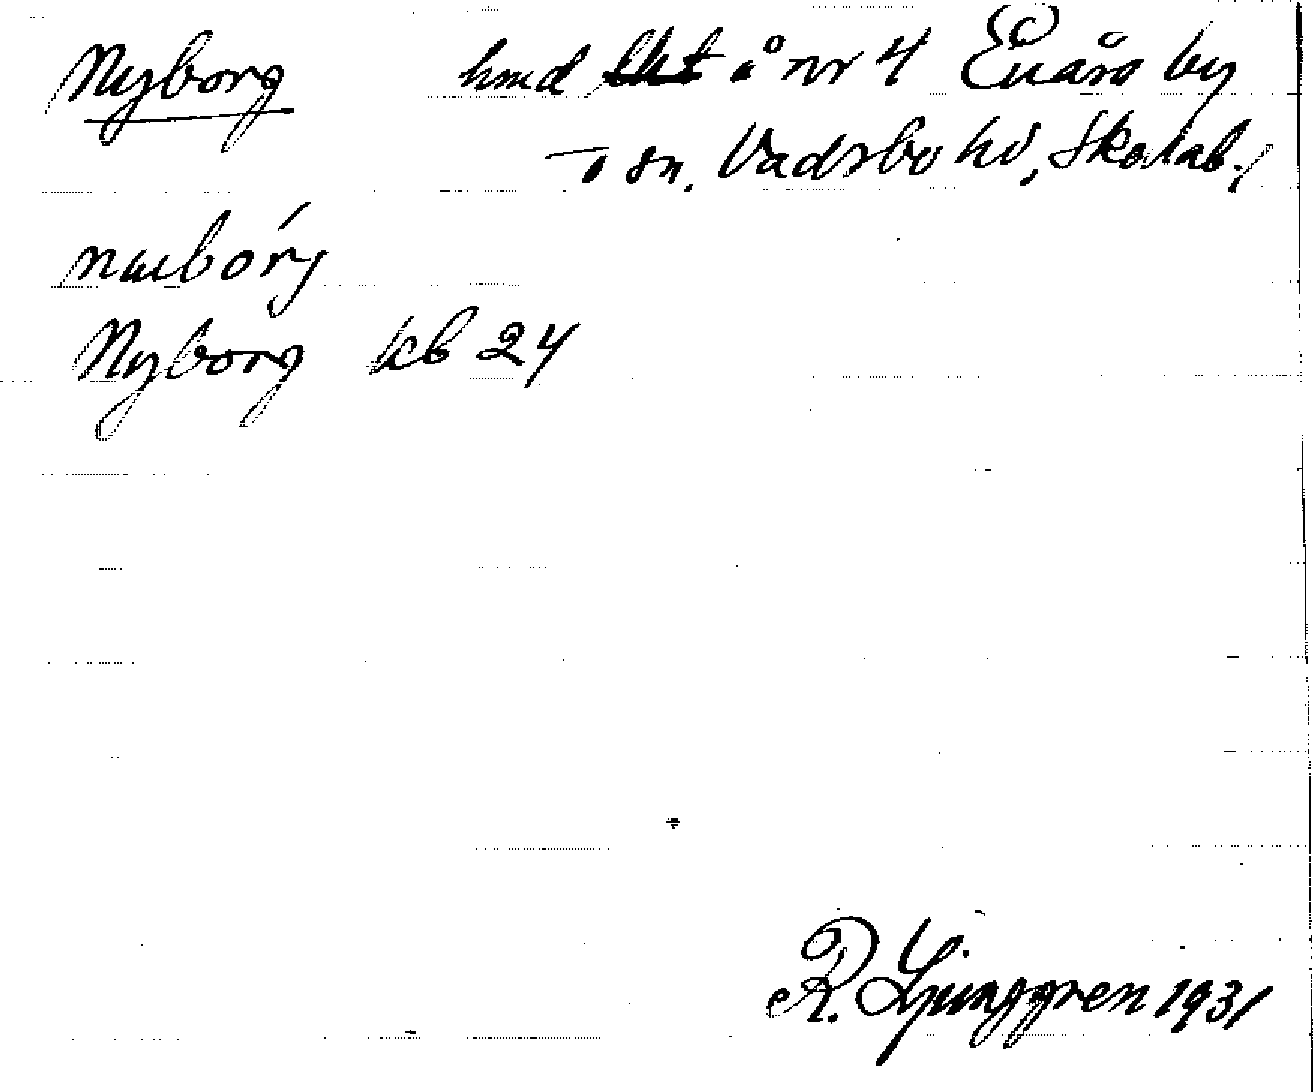 Nyborg hmd å nr 4 Enåsa by
— o sn, Vadsbo hd, Skarab.l
Nyborg kb 24
R. Ljunggren 1931